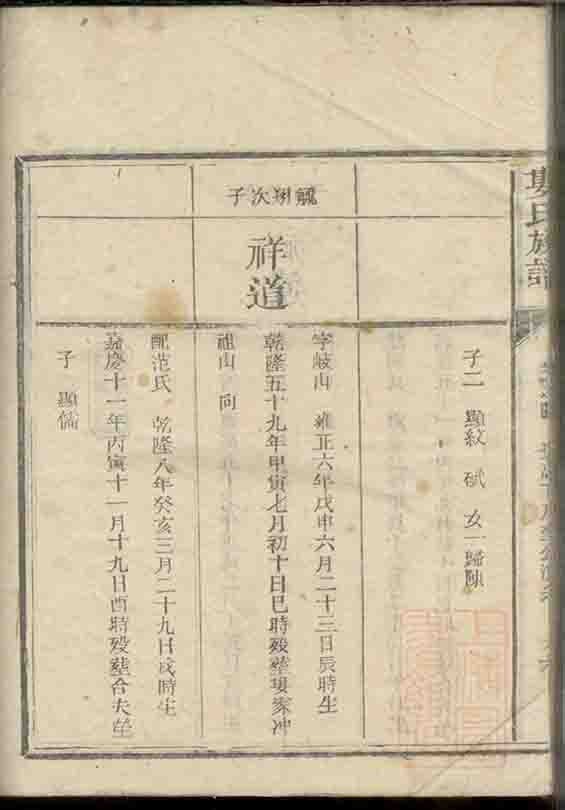 婁氏族譜
子二 顯紋 斌 女一歸陳
飜翔次子
祥道
字岐山 雍正六年戊申六月二十三日辰時生
乾隆五十九年甲寅七月初十日巳時歿塟婁家冲
祖山 向
配范氏 乾隆八年癸亥三月二十九日戌時生
嘉慶十一年丙寅十一月十九日酉時歿塟合夫塋
子 顯儒